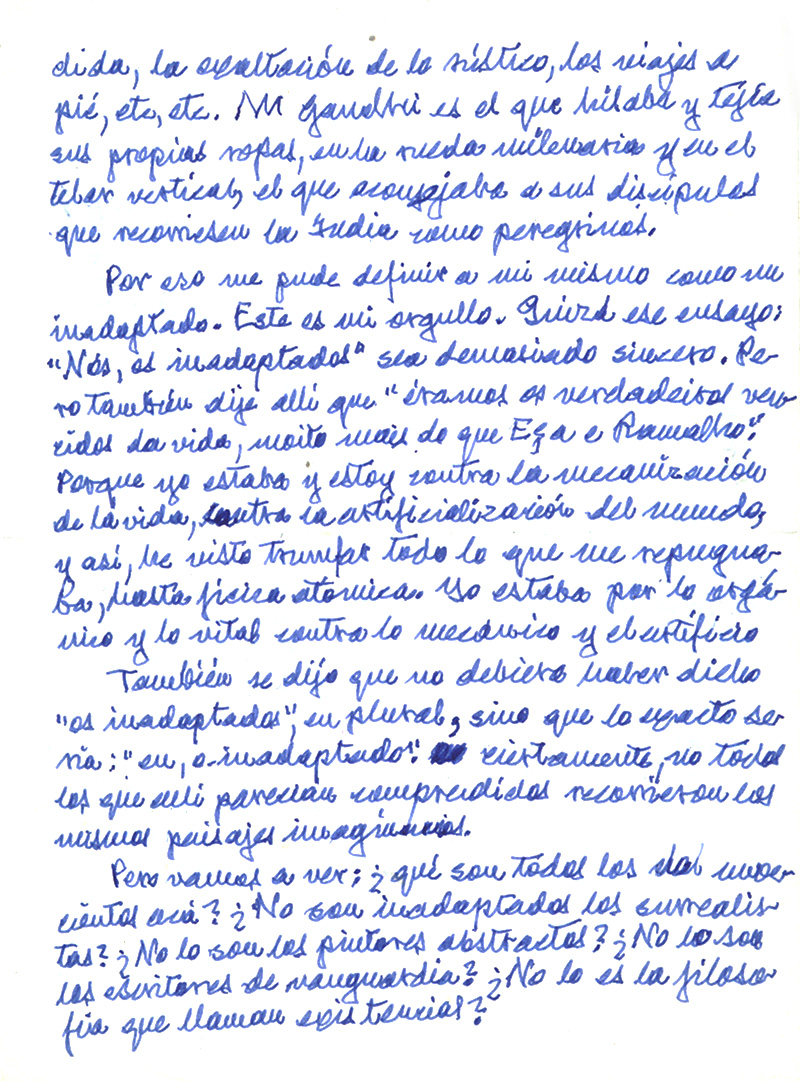 dida, la exaltación de lo rústico, los viajes a
pié, etc, etc. Gandhi es el que hilaba y tejía
sus propias ropas, en la rueda milenaria y en el
telar vertical, el que aconsejaba a sus discípulos
que recorriesen la India como peregrinos.
Por eso me pude definir a mi mismo como un
inadaptado. Este es mi orgullo. Quizá ese ensayo:
"Nós, os inadaptados" sea demasiado sincero. Pe-
ro también dije allí que "éramos os verdadeiros ven-
cidos da vida, moito mais do que Eça e Ramalho".
Porque yo estaba y estoy contra la mecanización
de la vida, contra la artificialización del mundo,
y así, he visto triunfar todo lo que me repugna-
ba, hasta física atómica. Yo estaba por lo orgá-
nico y lo vital contra lo mecánico y el artificio
También se dijo que no debiera haber dicho
"os inadaptados", en plural, sino que lo exacto se-
ría: "eu, o inadaptado". ciertamente, no todos
los que allí parecían comprendidos recorrieron los
mismos paisajes imaginarios.
Pero vamos a ver; ¿qué son todos los
cientos acá? ¿No son inadaptados los surrealis-
tas? ¿No lo son los pintores abstractos? ¿No lo son
los escritores de vanguardia? ¿No lo es la filoso-
fía que llaman existencial?